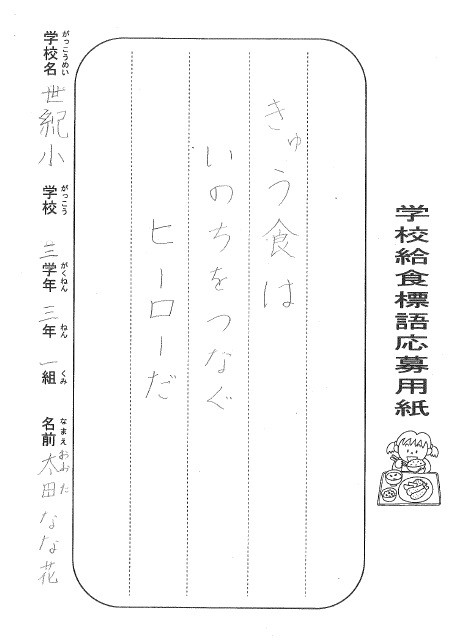 学校給食標語応募用紙
きゅう食は
いのちをつなぐ
ヒーローだ
がっこうめい がっこう がくねん ねん くみ なまえ おおた
学校名 世紀小 学校 三 学年 三 年 一 組 名前 太田 なな花